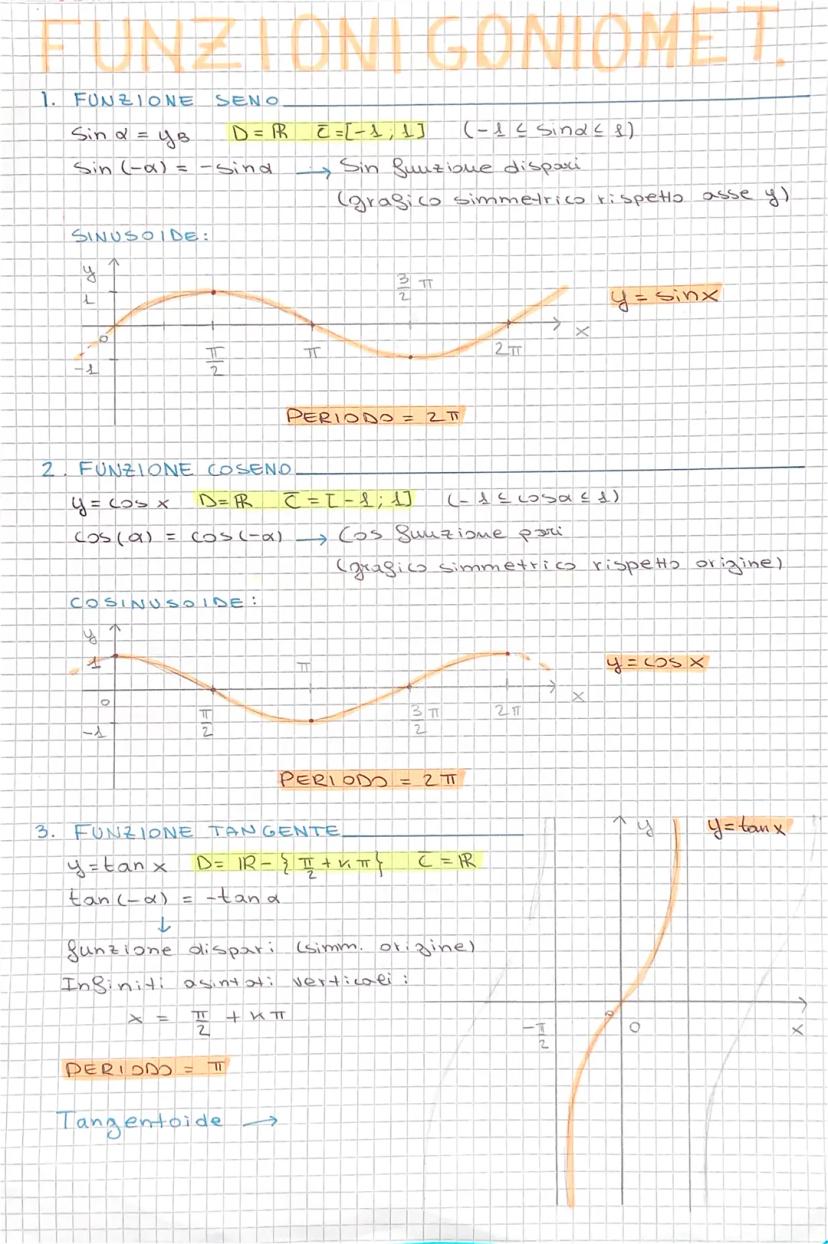 FUNZIONI GONIOMET.
1. FUNZIONE SENO
Sin α = yB D = ℝ C̄ = [-1; 1] (-1 ≤ sinα ≤ 1)
Sin (-α) = -sinα → Sin funzione dispari
(grafico simmetrico rispetto asse y)
SINUSOIDE:
y
1
3/2 π
y = sinx
0
x
-1
π/2
π
2π
PERIODO = 2π
2. FUNZIONE COSENO
y = cos x D = ℝ C̄ = [-1; 1] (-1 ≤ cosα ≤ 1)
cos(α) = cos(-α) → Cos funzione pari
(grafico simmetrico rispetto origine)
COSINUSOIDE:
y
1
π
y = cos x
0
x
-1
π/2
3/2 π
2π
PERIODO = 2π
3. FUNZIONE TANGENTE
y
y = tan x
y = tan x D = ℝ - {π/2 + kπ} C̄ = ℝ
tan (-α) = -tan α
↓
funzione dispari (simm. origine)
Infiniti asintoti verticali:
x = π/2 + kπ
-π/2
0
x
PERIODO = π
Tangentoide →